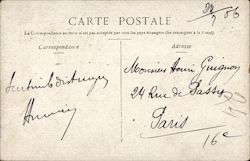 24/7 06
CARTE POSTALE
La Correspondance au recto n'est pas acceptée par tous les pays étrangers (Se renseigner à la Poste).
Correspondance
Adresse
Monsieur Henri Guignon
24 Rue de Passy
Paris
16e